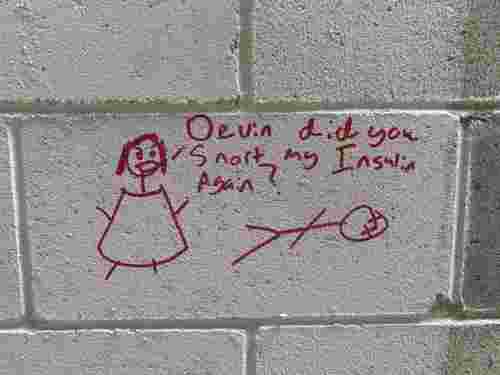 Devin did you
Snort my Insulin
Again?